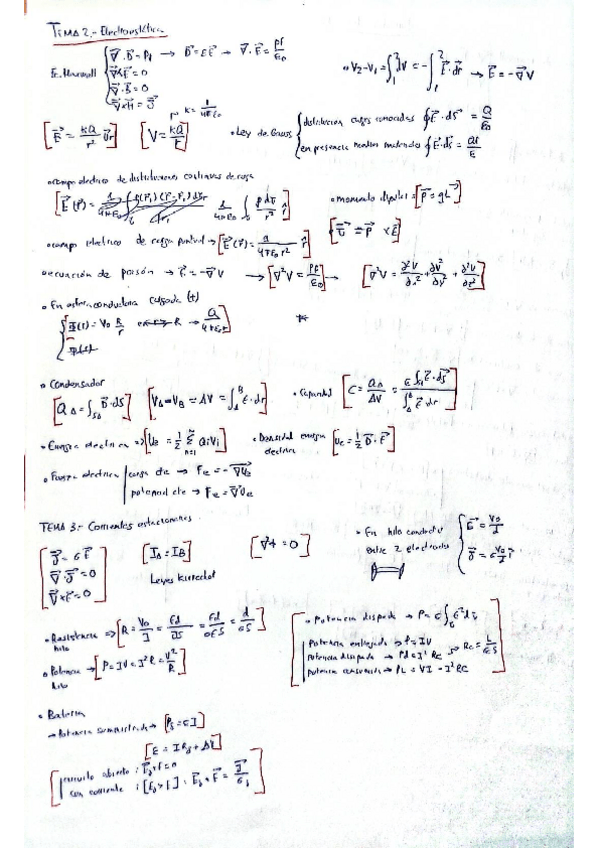 TEMA 2.- Electroestática
Ec. Maxwell { ∇·D = ρf → D = εE → ∇·E = ρf/ε0
∇×E = 0
∇·B = 0
∇×H = J
V2-V1 = ∫₁² dV = -∫₁² E·dr → E = -∇V
k = 1/4πε0
[E = kQ/r² ûr] [V = kQ/r]
• Ley de Gauss { distribución cargas conocidas ∮E·ds = Q/ε0
en presencia medios materiales ∮E·ds = Qf/ε
• campo eléctrico de distribuciones continuas de carga
[E(r) = 1/4πε0 ∫ ρdτ/r² r̂]
• momento dipolar = [p = qL]
[τ = p × E]
• campo eléctrico de carga puntual → [E(r) = q/4πε0r² r̂]
• ecuación de poisón → E = -∇V → [∇²V = ρf/ε0] → [∇²V = ∂²V/∂x² + ∂²V/∂y² + ∂²V/∂z²]
• En esfera conductora cargada (t)
Φ(r) = V0 R/r R → Q/4πε0r
• Condensador
[QA = ∫SA D·dS] [VA-VB = ΔV = ∫A^B E·dr]
• Capacidad [C = QA/ΔV = ε∫A E·dS / ∫A^B E·dr]
• Energía eléctrica => [Ue = 1/2 Σ QiVi]
n=1
• Densidad energía eléctrica [ue = 1/2 D·E]
• Fuerza eléctrica | carga cte → Fe = -∇Ue
potencial cte → Fe = ∇Ue
TEMA 3.- Corrientes estacionarias
[J = σE
∇·J = 0
∇×E = 0]
[IA = IB]
Leyes Kirchhof
[∇²φ = 0]
• En hilo conductor entre 2 electrodos { E = V0/d
J = σ V0/d î
• Resistencia hilo => [R = V0/I = Ed/JS = Ed/σES = d/σS]
• Potencia hilo → [P = IV = I²R = V²/R]
• Potencia disipada → P = σ∫E²dτ
Potencia entregada → P = IV
potencia disipada → Pd = I²RC → RC = L/σS
potencia consumida → PL = VI - I²RC
• Batería
→ Potencia suministrada → [PS = εI]
[ε = IRg + ΔV]
circuito abierto : Eg+E=0
con corriente : [Eg>E] : Eg+E = J/σg